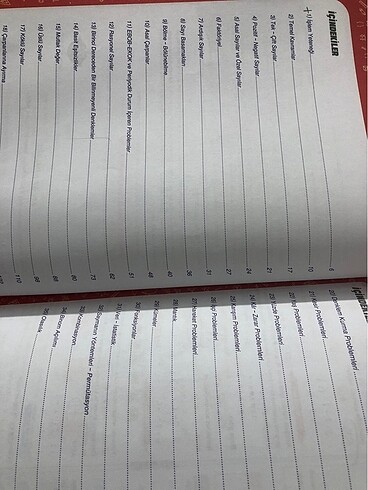 İÇİNDEKİLER
1) İşlem Yeteneği 5
2) Temel Kavramlar 10
3) Tek - Çift Sayılar 17
4) Pozitif - Negatif Sayılar 21
5) Asal Sayılar ve Özel Sayılar 24
6) Faktöriyel 27
7) Ardışık Sayılar 31
8) Sayı Basamakları 36
9) Bölme - Bölünebilme 40
10) Asal Çarpanlar 48
11) EBOB-EKOK ve Periyodik Durum İçeren Problemler 51
12) Rasyonel Sayılar 62
13) Birinci Dereceden Bir Bilinmeyenli Denklemler 73
14) Basit Eşitsizlikler 80
15) Mutlak Değer 89
16) Üslü Sayılar 98
17) Köklü Sayılar 110
18) Çarpanlarına Ayırma
İÇİNDEKİLER
Denklem Kurma Problemleri
Problemleri
Problemleri
Yüzde Problemleri
Kar - Zarar Problemleri
Karışım Problemleri
İşçi Problemleri
Hareket Problemleri
Mantık
Kümeler
Fonksiyonlar
Veri - İstatistik
Saymanın Yöntemleri - Permütasyon
Kombinasyon
Binom Açılımı
Olasılık